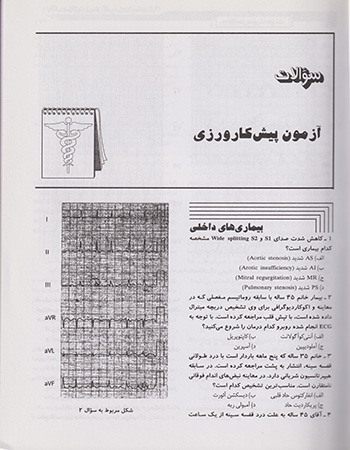 سؤالات
آزمون پیش‌کارورزی
بیماری‌های داخلی
۱ ـ کاهش شدت صدای S1 و Wide splitting S2 مشخصه
کدام بیماری است؟
الف) AS شدید (Aortic stenosis)
ب) AI شدید (Aortic insufficiency)
ج) MR شدید (Mitral regurgitation)
د) PS شدید (Pulmonary stenosis)
۲ ـ بیمار خانم ۴۵ ساله با سابقه روماتیسم مفصلی که در
معاینه و اکوکاردیوگرافی برای وی تشخیص دریچه میترال
داده شده است، با تپش قلب مراجعه کرده است. با توجه به
ECG انجام شده روبرو کدام درمان را شروع می‌کنید؟
الف) آنتی‌کواگولانت
ب) کاپتوپریل
ج) آملودیپین
د) آسپرین
۳ ـ خانم ۳۵ ساله که پنج ماهه باردار است با درد طولانی
قفسه سینه، انتشار به پشت مراجعه کرده است. در سابقه
هیپرتانسیون شریانی دارد. در معاینه نبض‌های اندام فوقانی
نامتقارن است. مناسب‌ترین تشخیص کدام است؟
الف) انفارکتوس حاد قلبی
ب) دیسکشن آئورت
ج) پریکاردیت حاد
د) آمبولی ریه
۴ ـ آقای ۴۵ ساله به علت درد قفسه سینه از یک ساعت
I
II
III
aVR
aVL
aVF
شکل مربوط به سؤال ۲